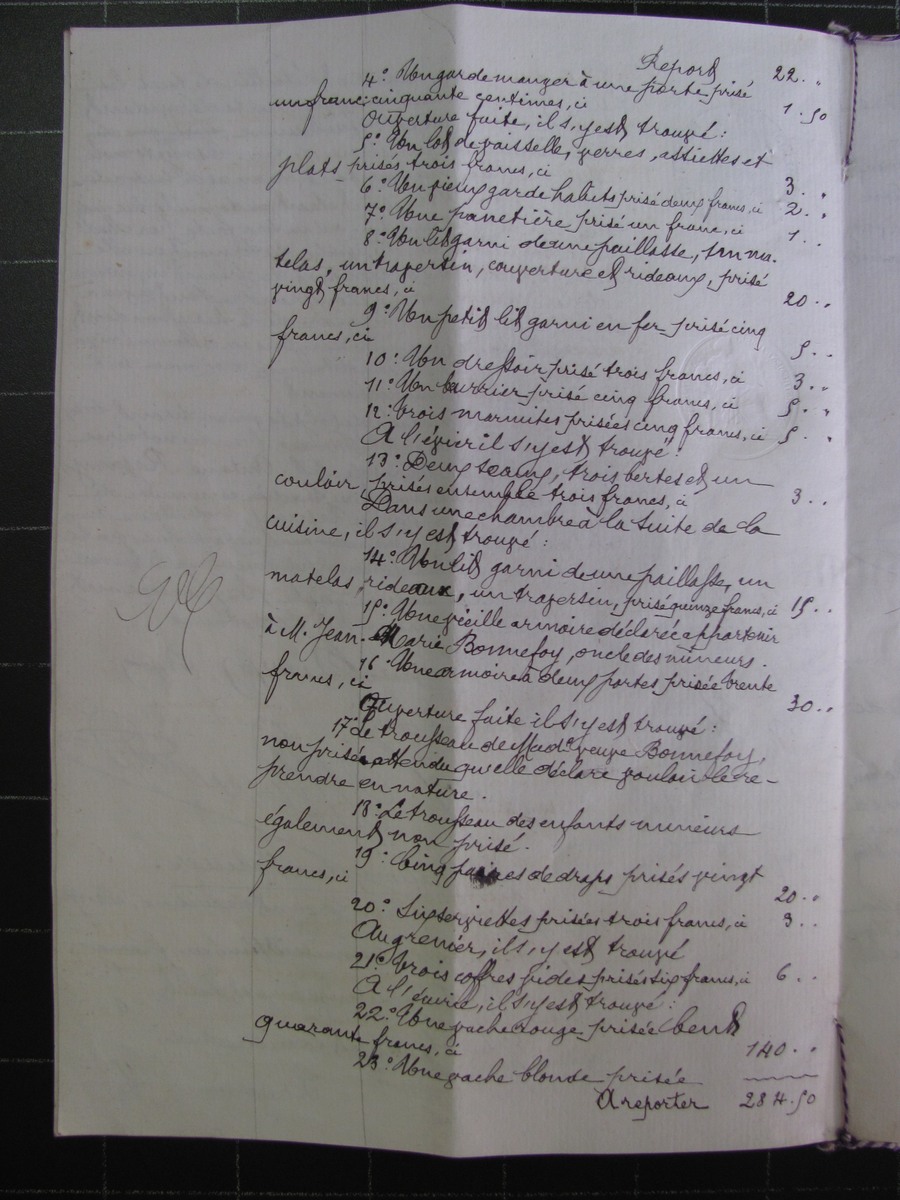 Report 22 . "
4° Un garde manger à une porte prisé
un franc cinquante centimes, ci 1 . 50
Ouverture faite, il s'y est trouvé :
5° Un lot de vaisselle, verres, assiettes et
plats prisés trois francs, ci 3 . "
6° Un vieux garde habits prisé deux francs, ci 2 . "
7° Une panetière prisé un franc, ci 1 . .
8° Un lit garni de une paillasse, un ma-
telas, un traversin, couverture et rideaux, prisé
vingt francs, ci 20 . .
9° Un petit lit garni en fer prisé cinq
francs, ci 5 . .
10° Un dressoir prisé trois francs, ci 3 . .
11° Un beurrier prisé cinq francs, ci 5 . "
12° Trois marmites prisées cinq francs, ci 5 . "
A l'évier il s'y est trouvé :
13° Deux seaux, trois bertes et un
couloir prisés ensemble trois francs, ci 3 . .
Dans une chambre à la suite de la
cuisine, il s'y est trouvé :
14° Un lit garni de une paillasse, un
matelas, rideaux, un traversin, prisé quinze francs, ci 15 . .
15° Une vieille armoire déclarée appartenir
à M. Jean-Marie Bonnefoy, oncle des mineurs.
16° Une armoire à deux portes prisée trente
francs, ci 30 . .
Ouverture faite il s'y est trouvé :
17° Le trousseau de Made veuve Bonnefoy,
non prisé attendu qu'elle déclare vouloir le re-
prendre en nature.
18° Le trousseau des enfants mineurs
également non prisé.
19° Cinq paires de draps prisés vingt
francs, ci 20 . "
20° Six serviettes prisées trois francs, ci 3 . .
Au grenier, il s'y est trouvé
21° Trois coffres vides prisés six francs, ci 6 . .
A l'écurie, il s'y est trouvé :
22° Une vache rouge prisée cent
quarante francs, ci 140 . .
23° Une vache blonde prisée
A reporter 284 . 50